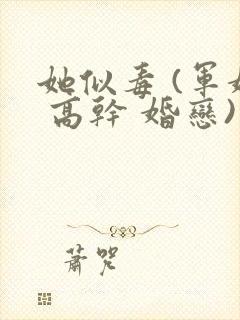 她似毒(軍婚
高幹 婚戀)
蕭咒